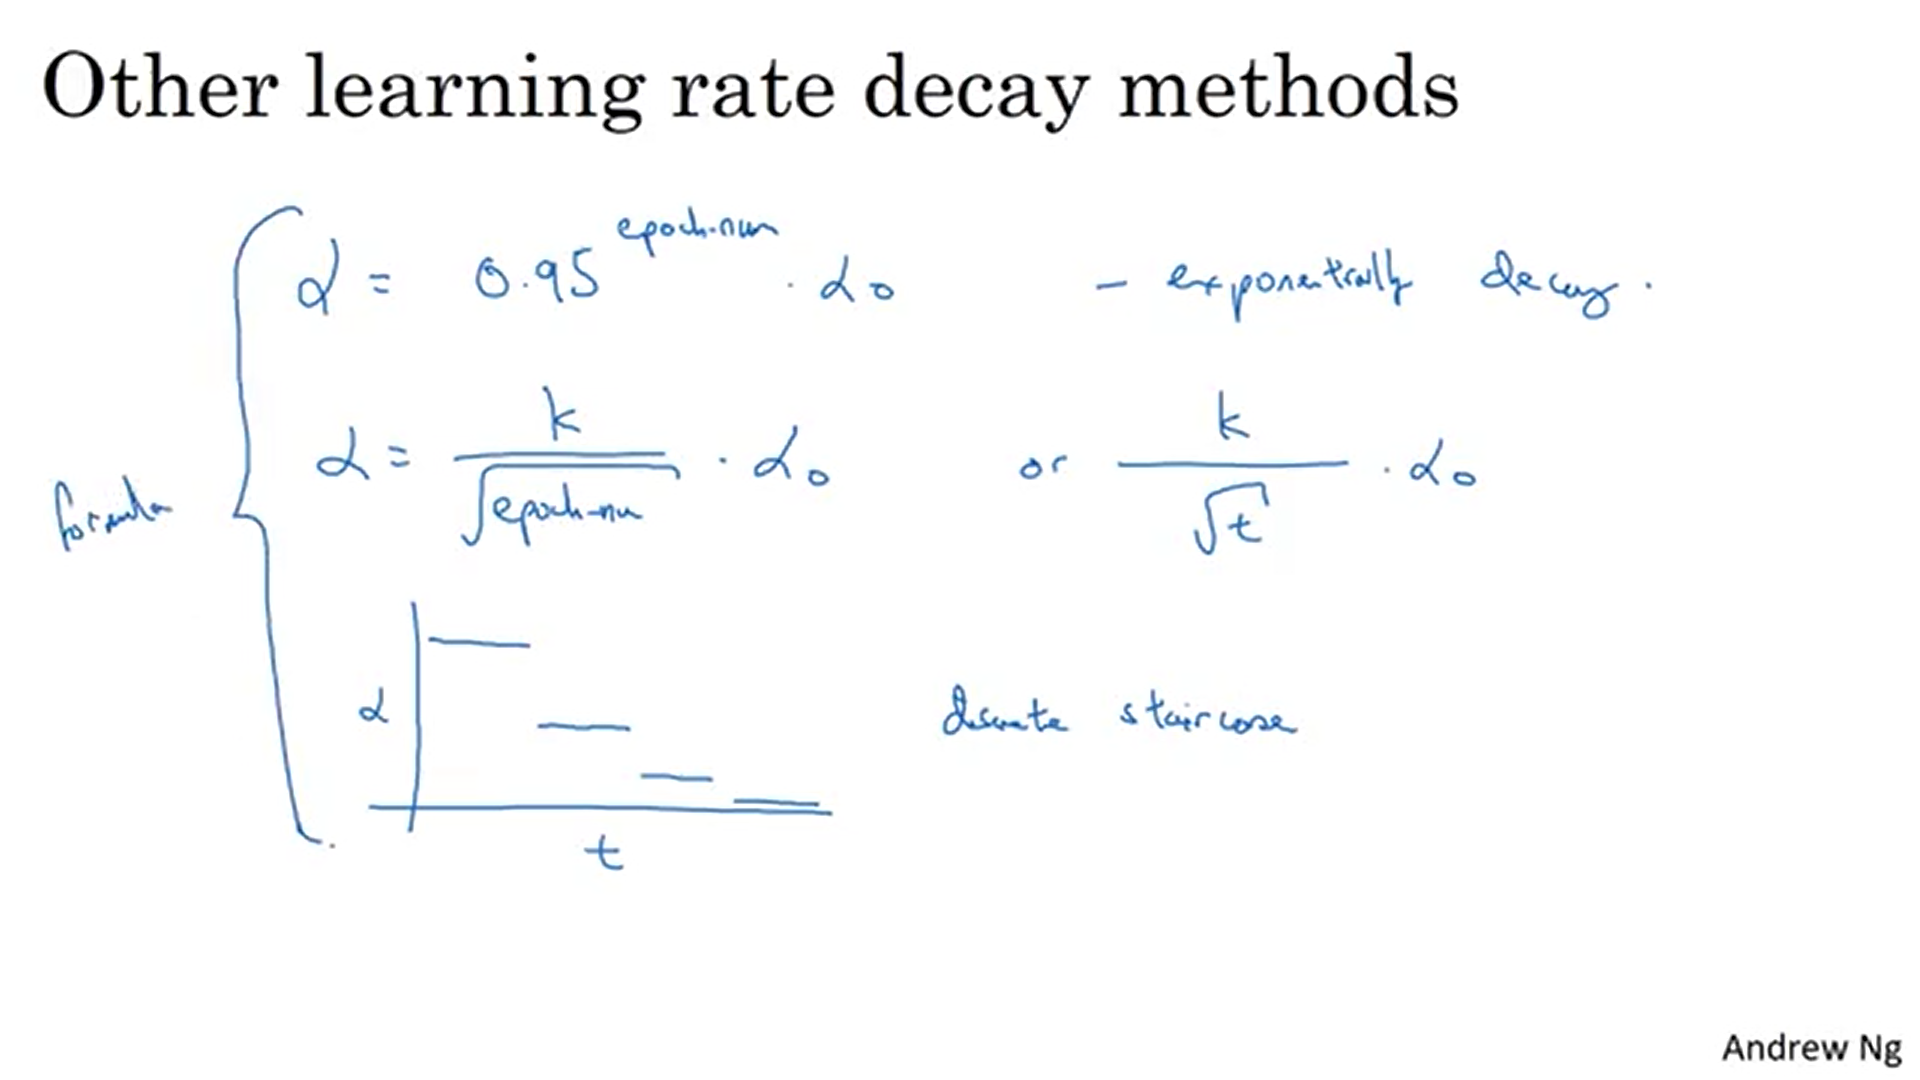 Other learning rate decay methods
α = 0.95^epoch-num · α₀ - exponentially decay.
formula
α = k/√epoch-num · α₀ or k/√t · α₀
α
discrete staircase
t
Andrew Ng